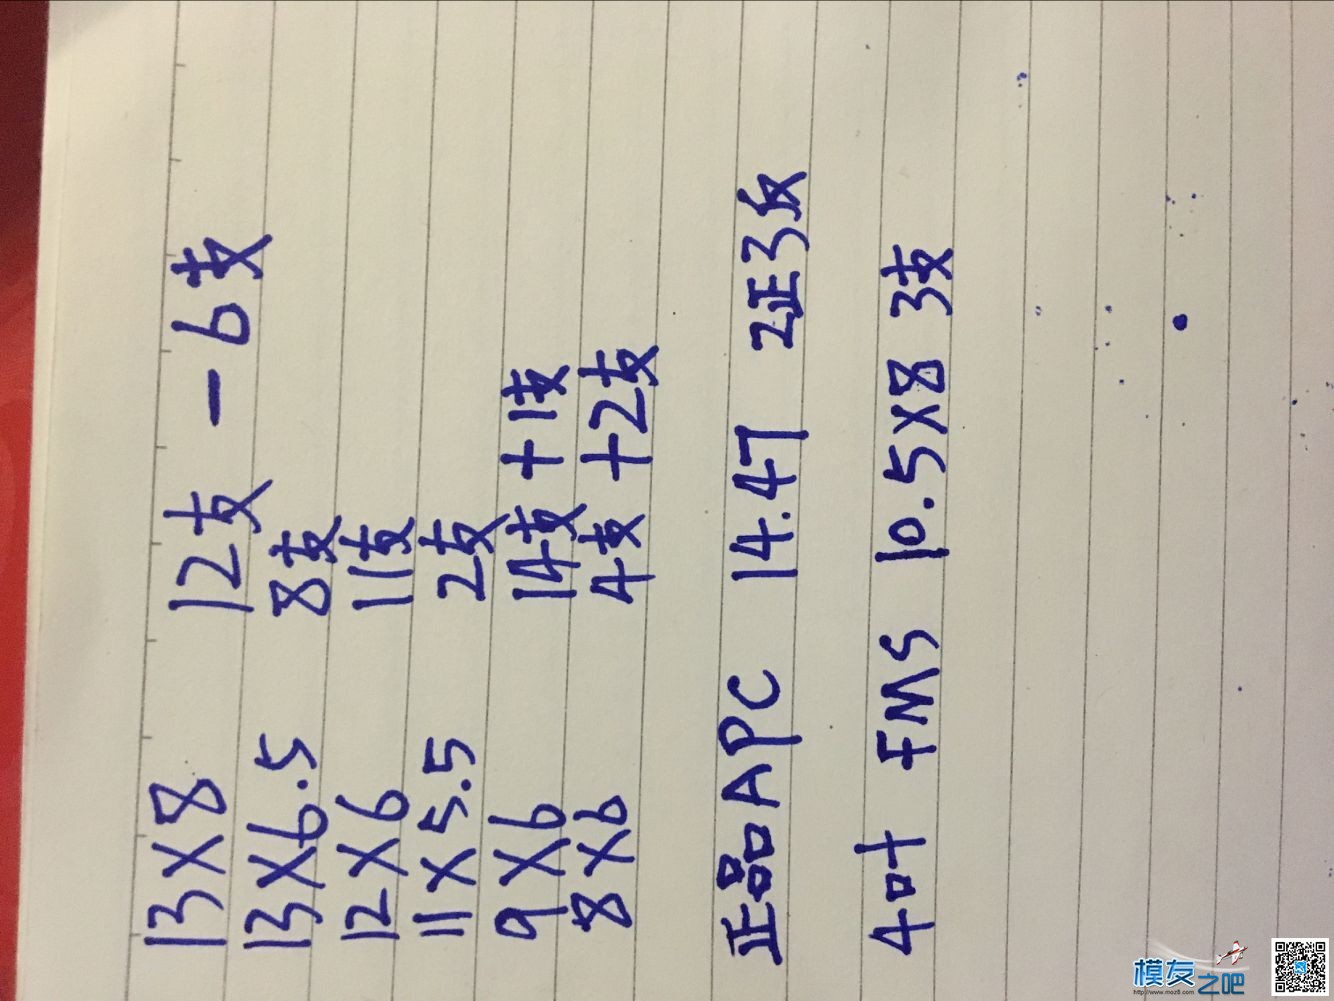 13×8 12支 — 6支
13×6.5 8支
12×6 11支
11×5.5 2支
9×6 14支+1支
8×6 4支+2支
正品APC 14.47 2正3反
4叶 FMS 10.5×8 3支
模友之吧
http://www.moz8.com